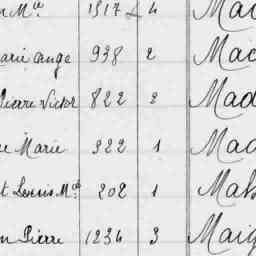 n Mᵉ 1317 4 Mai
arie ange 938 2 Mad
Pierre Victor 822 2 Mad
e Marie 322 1 Mad
t Louis Mᵉ 202 1 Mah
n Pierre 1234 3 Maig